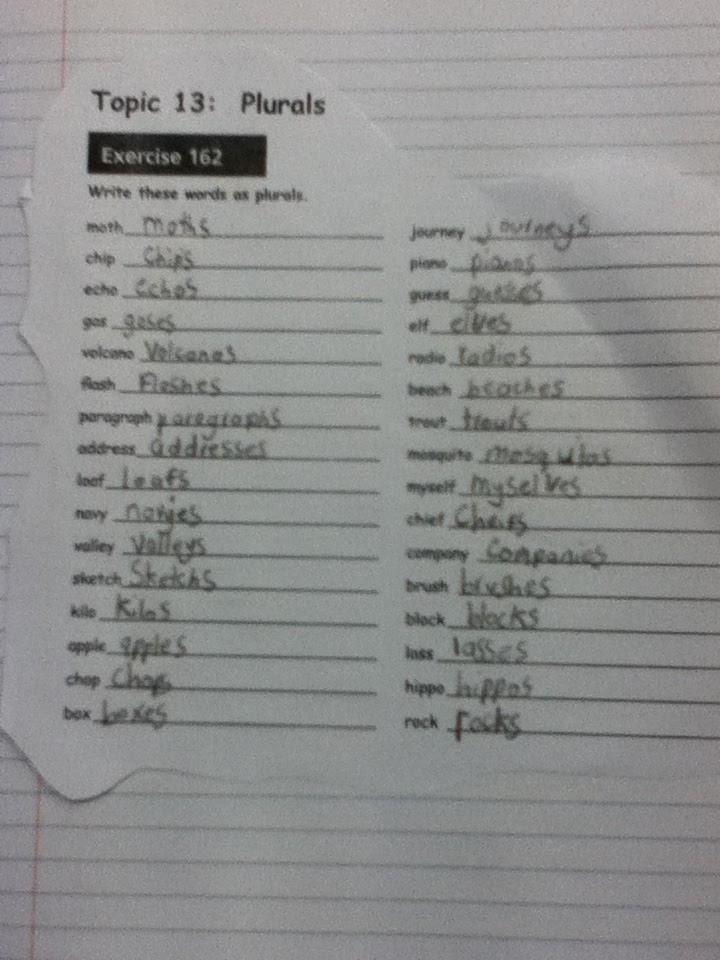 Topic 13: Plurals
Exercise 162
Write these words as plurals.
moth moths
chip chips
echo echos
gas gases
volcano volcanos
flash flashes
paragraph paregraphs
address addresses
loaf loafs
navy navjes
valley valleys
sketch sketchs
kilo kilos
apple apples
chop chops
box boxes
journey journeys
piano pianos
guess guesses
elf elves
radio radios
beach beaches
trout trouts
mosquito
myself myselves
chief
company companies
brush brushes
block blocks
lass lasses
hippo hippos
rock rocks